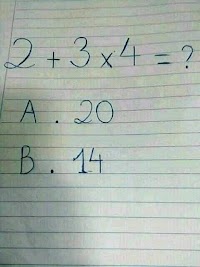 2 + 3 x 4 = ?
A . 20
B . 14